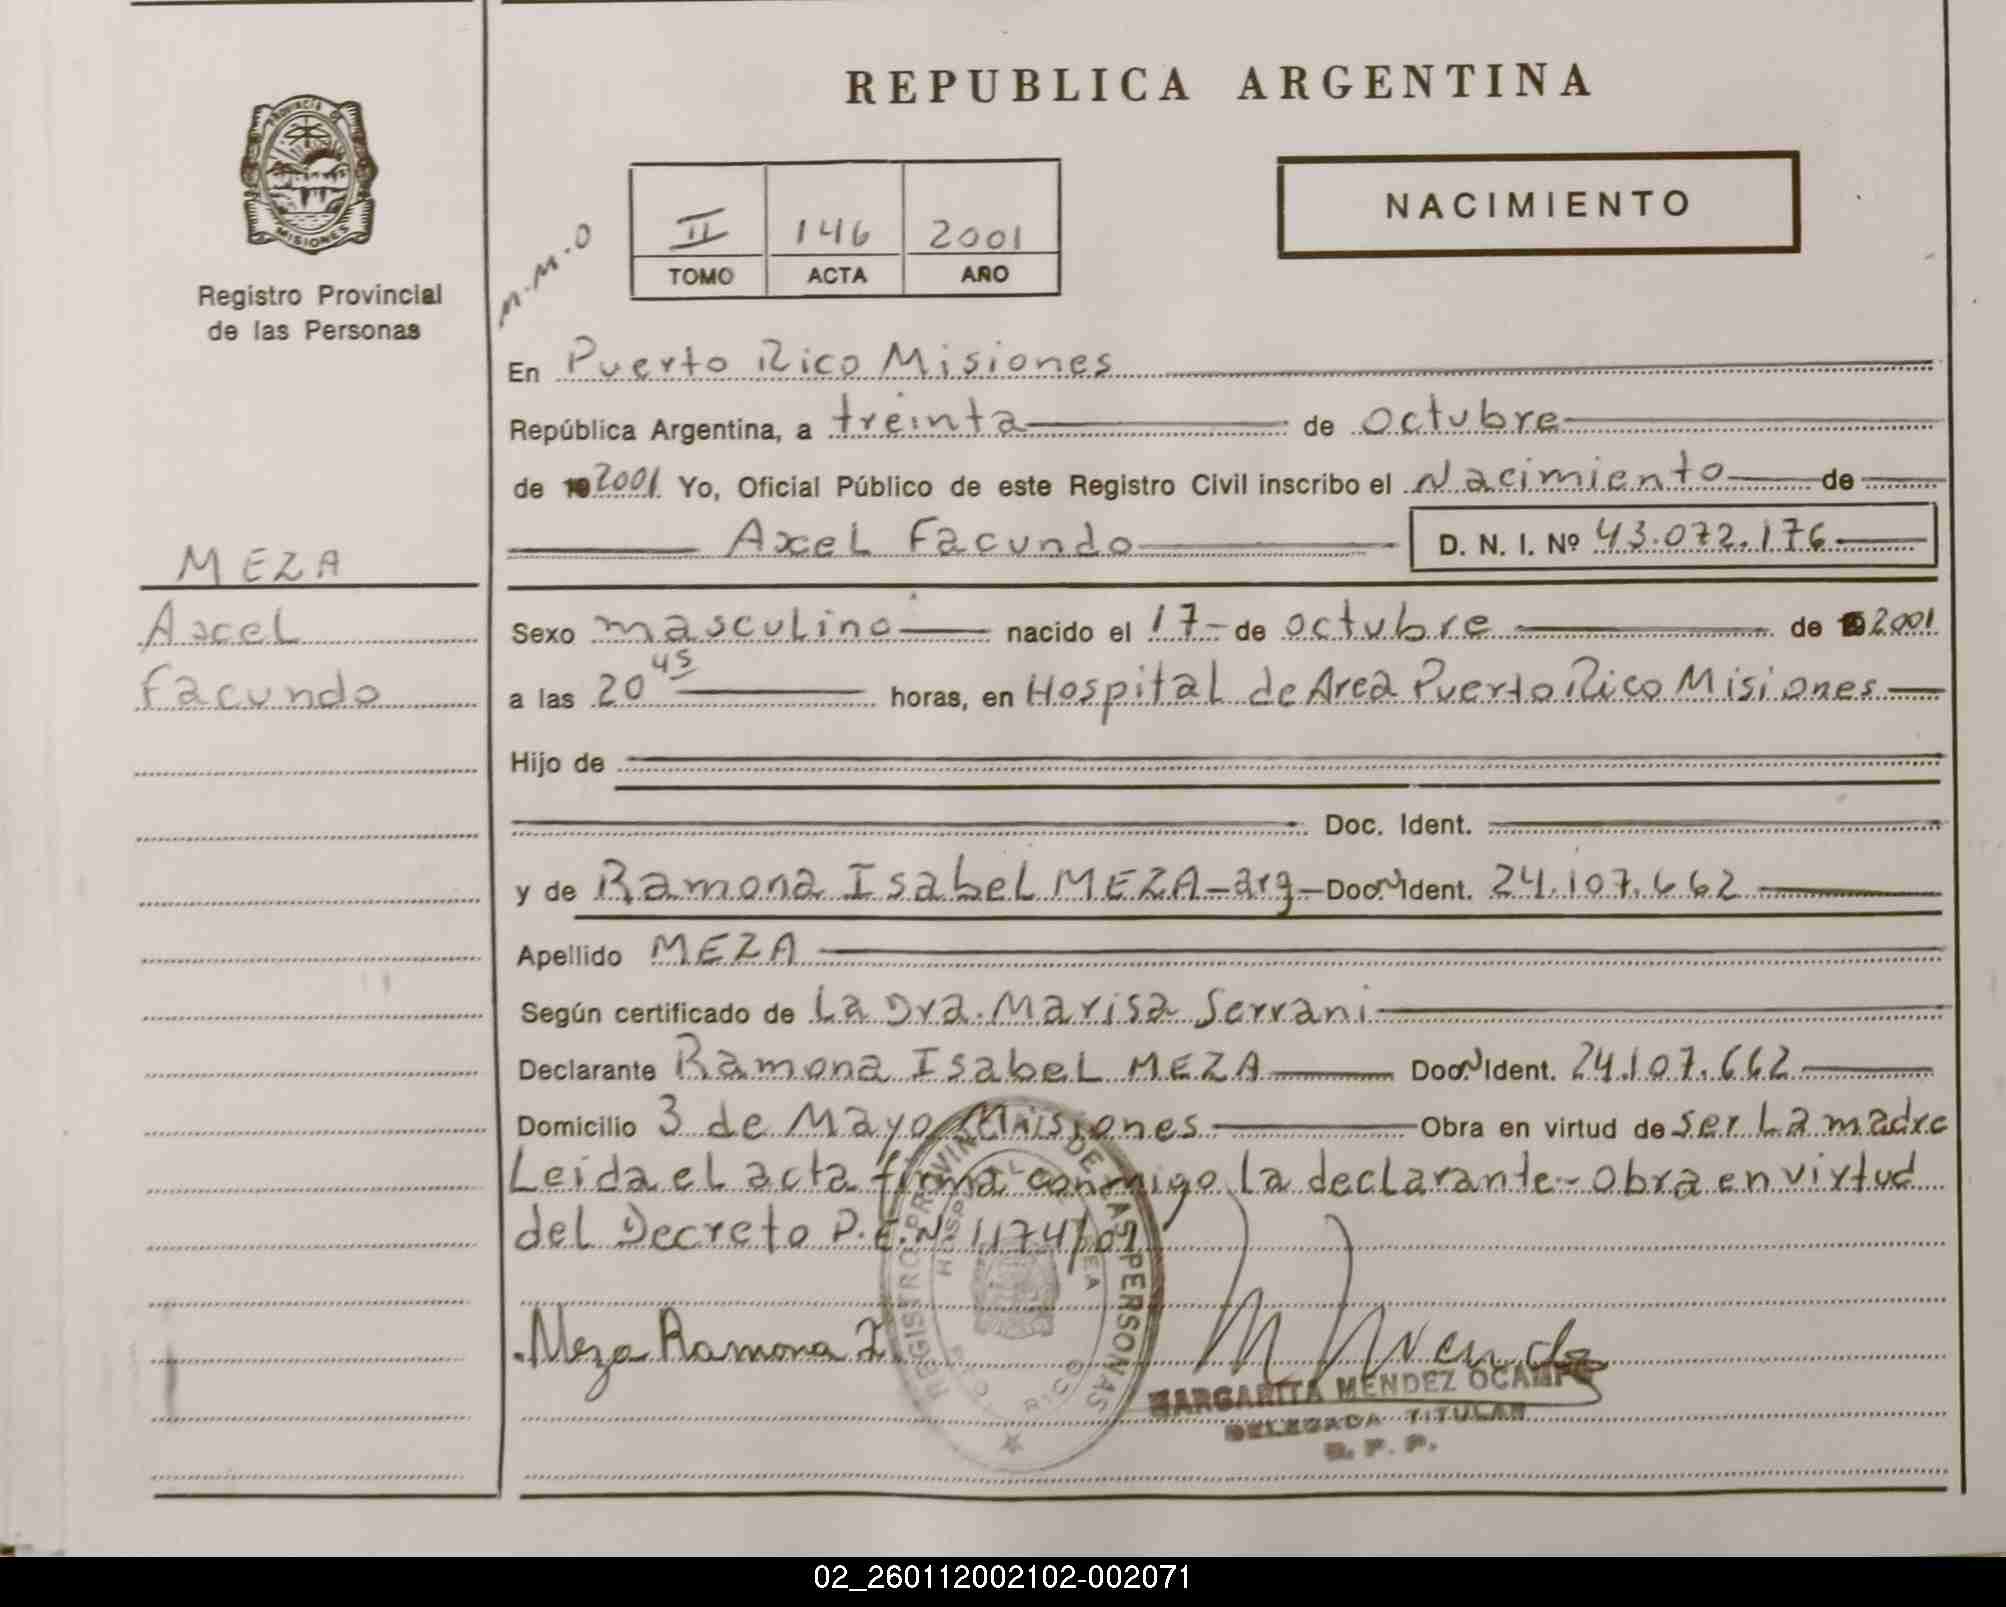 REPUBLICA ARGENTINA
PROVINCIA DE
MISIONES
Registro Provincial
de las Personas
M.M.O
II 146 2001
TOMO ACTA AÑO
NACIMIENTO
En Puerto Rico Misiones
República Argentina, a treinta de octubre
de 19 2001 Yo, Oficial Público de este Registro Civil inscribo el Nacimiento de
Axel Facundo D. N. I. Nº 43.072.176
MEZA
Axel
Facundo
Sexo masculino nacido el 17 - de octubre de 2001
a las 20 45 horas, en Hospital de Area Puerto Rico Misiones
Hijo de
Doc. Ident.
y de Ramona Isabel MEZA - arg - Doc. N Ident. 24.107.662
Apellido MEZA
Según certificado de La Dra. Marisa Serrani
Declarante Ramona Isabel MEZA Doc. N Ident. 24.107.662
Domicilio 3 de Mayo Misiones Obra en virtud de ser La madre
Leida el acta firma conmigo la declarante - obra en virtud
del Decreto P.E.N 1174/01
Meza Ramona I.
REGISTRO PROVINCIAL DE LAS PERSONAS
HOSPITAL AREA
PTO. RICO
MARGARITA MENDEZ OCAMPO
DELEGADA TITULAR
R. P. P.
02_260112002102-002071